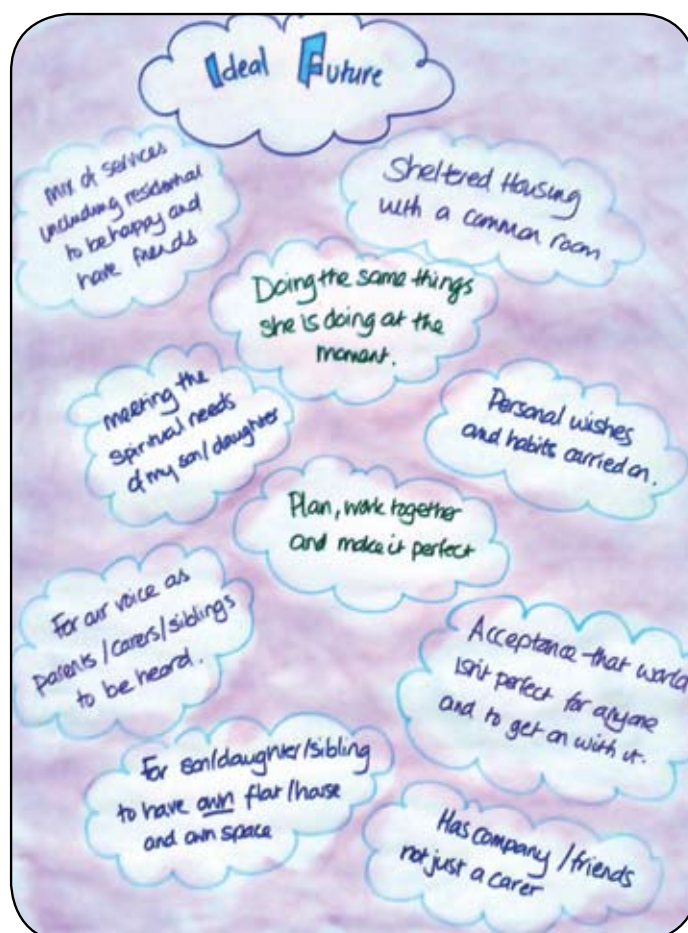 Ideal Future
mix of services
including residential
to be happy and
have friends
Sheltered Housing
with a common room
Doing the same things
she is doing at the
moment.
meeting the
spiritual needs
of my son/daughter
Personal wishes
and habits carried on.
Plan, work together
and make it perfect
For our voice as
parents/carers/siblings
to be heard.
Acceptance that world
isn't perfect for anyone
and to get on with it.
For son/daughter/sibling
to have own flat/house
and own space
Has company/friends
not just a carer